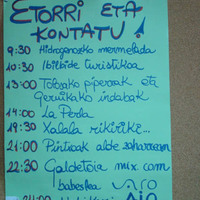 ETORRI ETA
KONTATU!
9:30 Hidrogenozko mermelada
10:30 Ibilbide turistikoa
13:00 Tolosako piperrak eta
Gernikako indabak
14:00 La Perla
19:30 Xalala rikiriki...
21:00 Pintxoak alde zaharrean
22:30 Galdetoia mix.com
babeslea
24:00